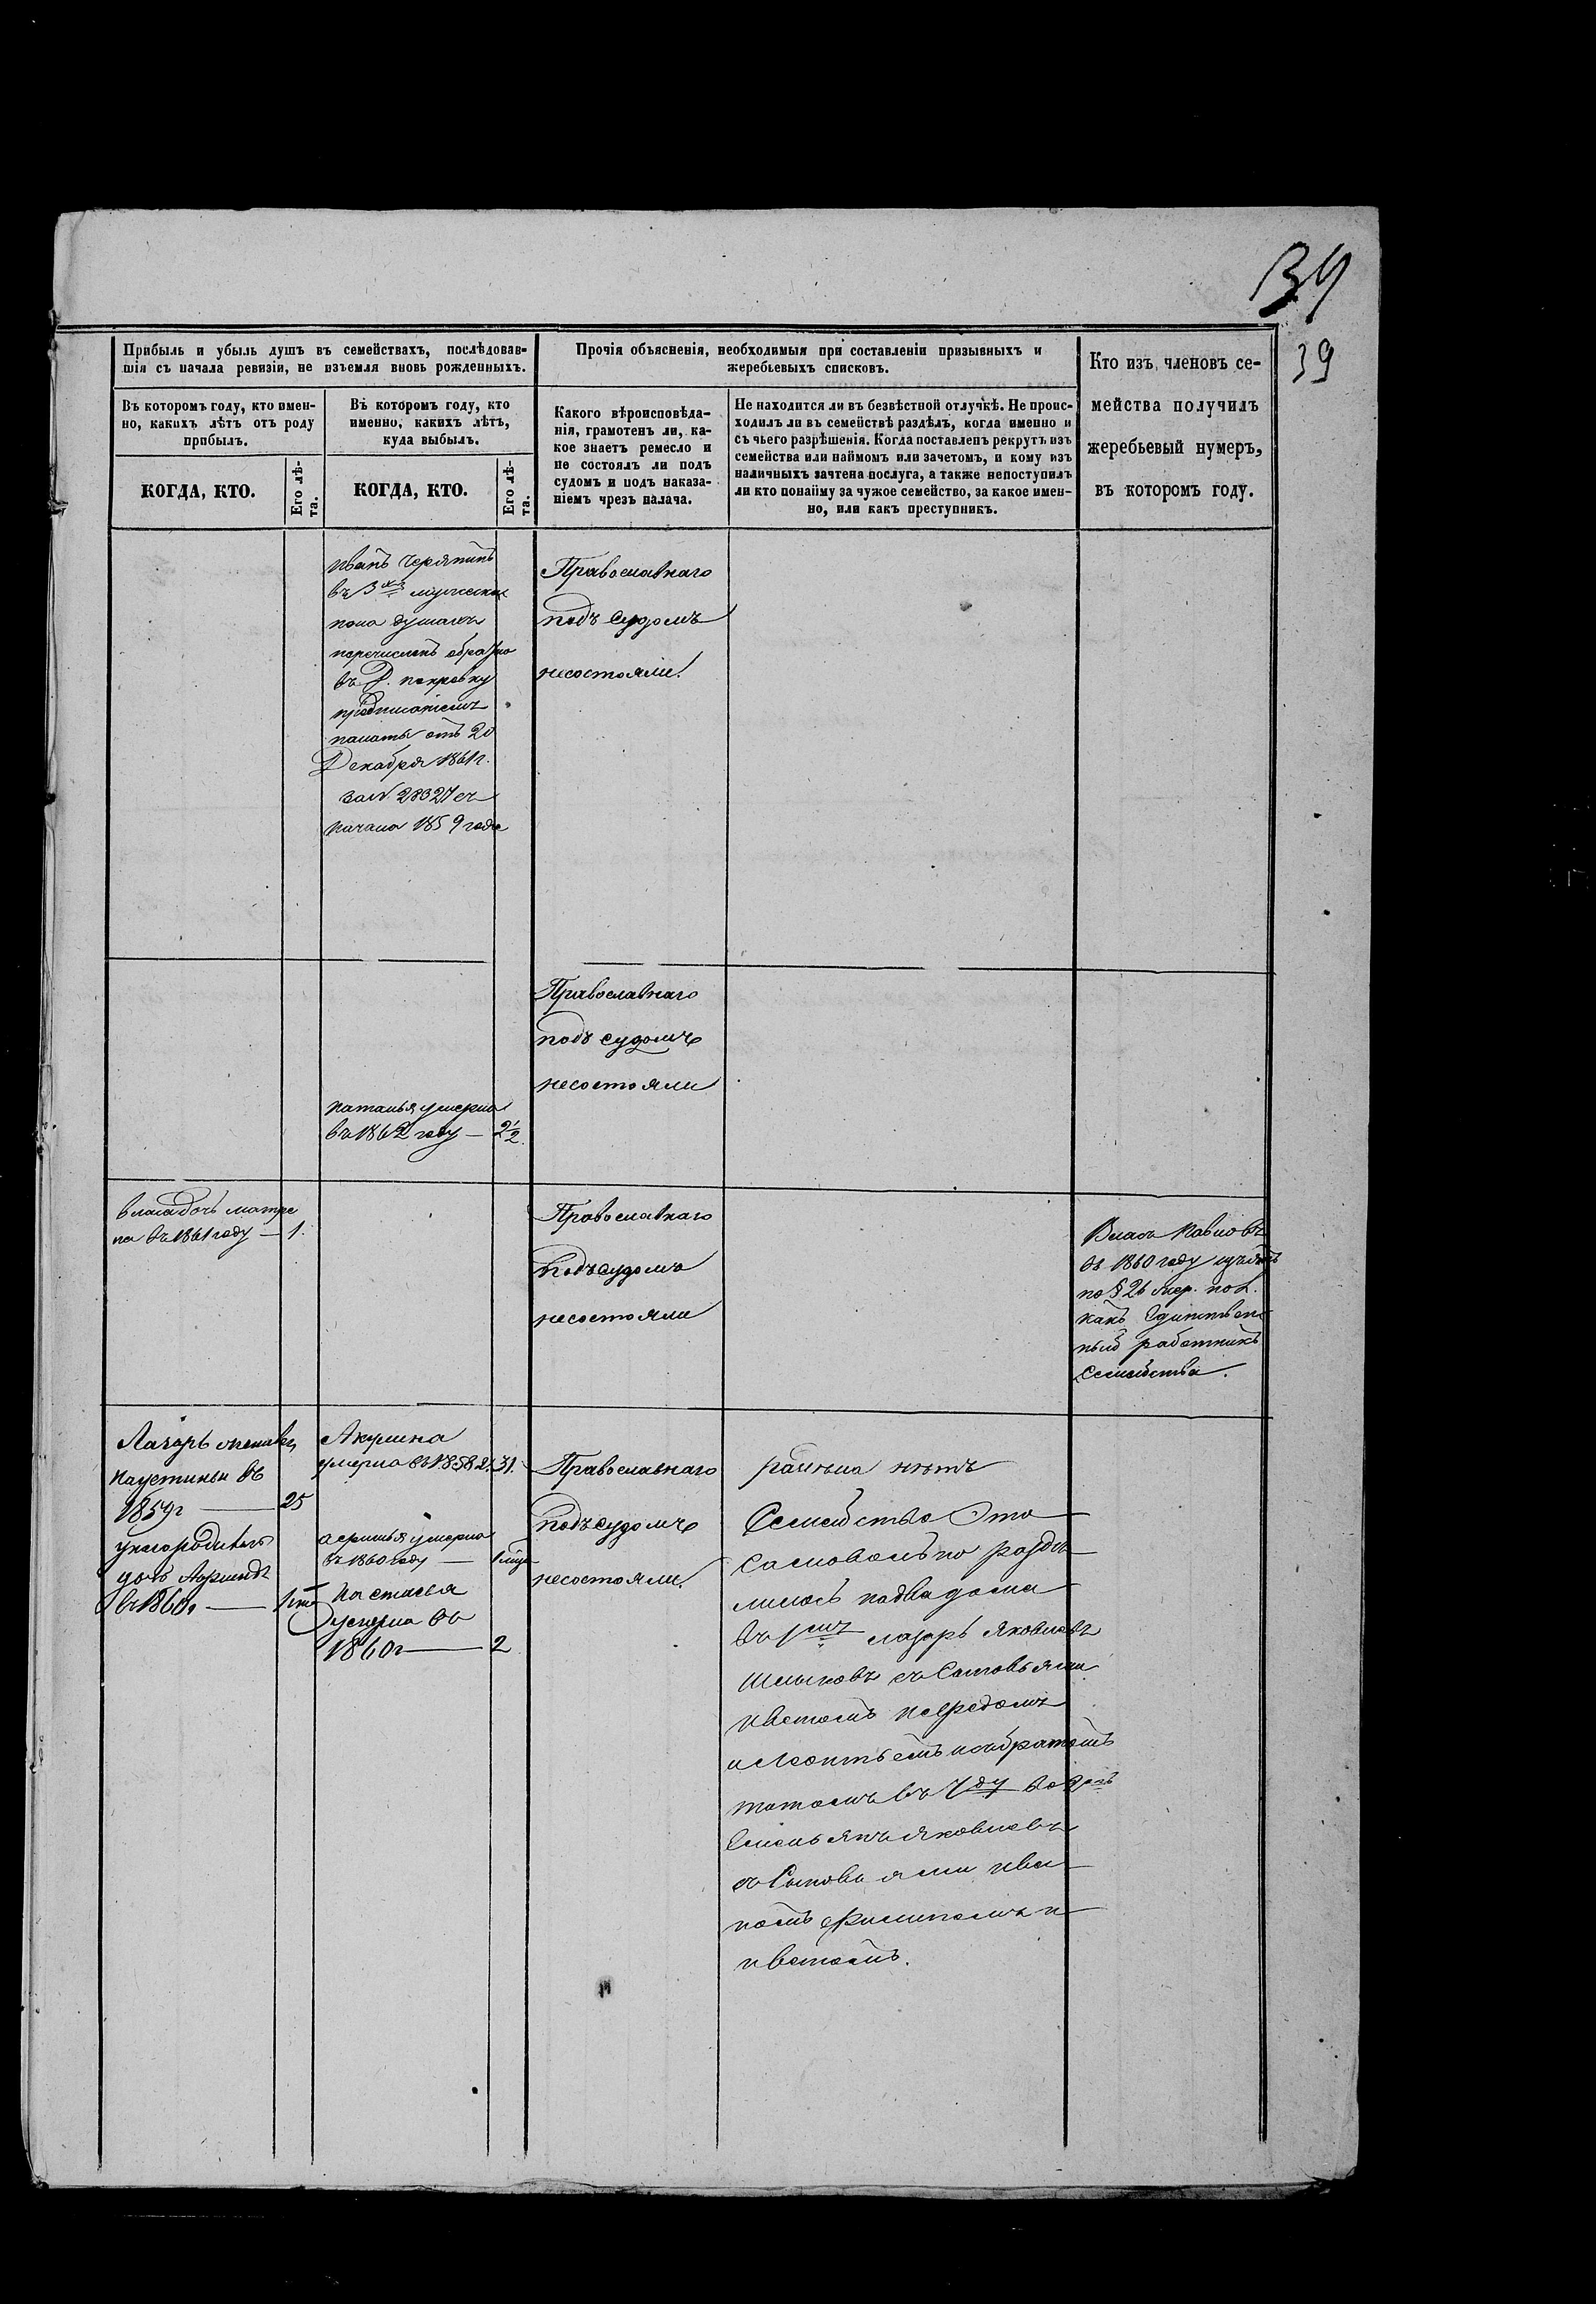 34
39
Прибыль и убыль душъ въ семействахъ, послѣдовав-
шія съ начала ревизіи, не изъемля вновь рожденныхъ.
Въ которомъ году, кто имен-
но, какихъ лѣтъ отъ роду
прибылъ.
КОГДА, КТО.
Его лѣ-
та.
Въ которомъ году, кто
именно, какихъ лѣтъ,
куда выбылъ.
КОГДА, КТО.
Его лѣ-
та.
Прочія объясненія, необходимыя при составленіи призывныхъ и
жеребьевыхъ списковъ.
Какого вѣроисповѣда-
нія, грамотенъ ли, ка-
кое знаетъ ремесло и
не состоялъ ли подъ
судомъ и подъ наказа-
ніемъ чрезъ палача.
Не находится ли въ безвѣстной отлучкѣ. Не проис-
ходилъ ли въ семействѣ раздѣлъ, когда именно и
съ чьего разрѣшенія. Когда поставленъ рекрутъ изъ
семейства или наймомъ или зачетомъ, и кому изъ
наличныхъ зачтена послуга, а также непоступилъ
ли кто понайму за чужое семейство, за какое имен-
но, или какъ преступникъ.
Кто изъ членовъ се-
мейства получилъ
жеребьевый нумеръ,
въ которомъ году.
Иванъ
въ 3
душахъ
перечисленъ обратно
въ Д. покровку
предписаніемъ
палаты отъ 20
Декабря 1861 г.
за № 28327 съ
начала 1859 года
Православнаго
подъ судомъ
несостояли.
Православнаго
подъ судомъ
несостояли
Наталья умерла
въ 1862 году — 2 1/2
Власа дочь матре
на въ 1861 году — 1.
Православнаго
подъ судомъ
несостояли
Власъ Павловъ
въ 1860 году изъятъ
по § 26
какъ Единствен
ный работникъ
Семейства.
Лазарь
въ
1859 г — 25
у него родилась
дочь
въ 1860 г —
Акулина
умерла въ 1858 г. 31.
умерла
въ 1860 году —
Настасья
умерла въ
1860 г — 2
Православнаго
подъ судомъ
несостояли.
нѣтъ
Семейство Это
Самовольно раздѣ
лилось надва дома
въ 1мъ лазарь Яковлевъ
съ Сыновьями
и братомъ
въ во 2мъ
Емельянъ Яковлевъ
съ Сыновьями Ива
номъ Филипомъ и